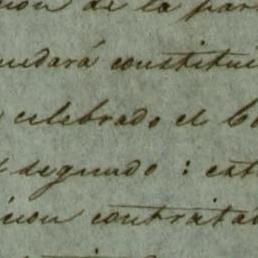 cion de la par
quedará constitui
celebrado el C
segundo : est
icion contratan